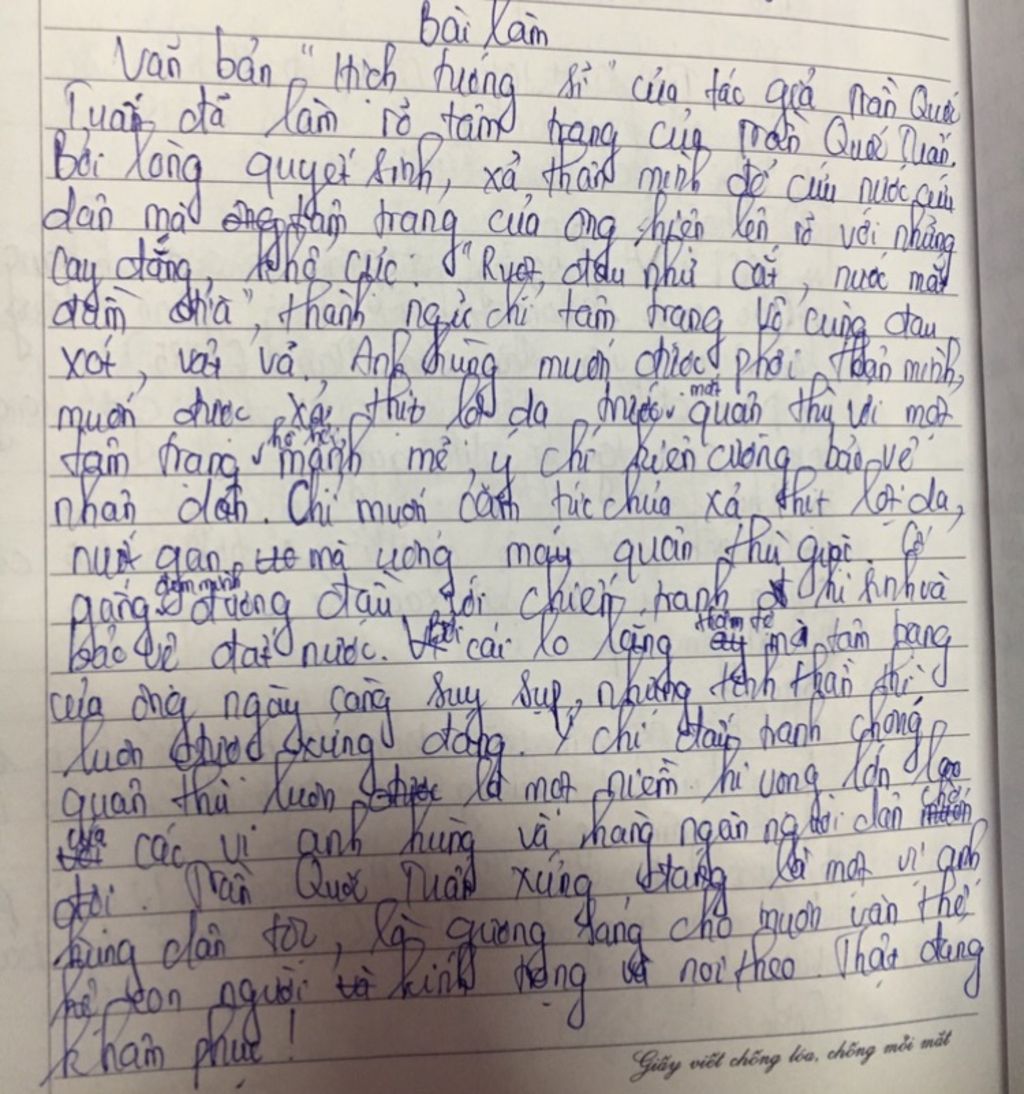 Bài làm
Văn bản "Hịch tướng sĩ" của tác giả Trần Quốc
Tuấn đã làm rõ tâm trạng của Trần Quốc Tuấn.
Bởi lòng quyết sinh, xả thân mình để cứu nước cứu
dân mà tâm trạng của ông hiện lên rõ với những
cay đắng, khổ cực: "Ruột đau như cắt, nước mắt
đầm đìa", thành ngữ chỉ tâm trạng vô cùng đau
xót, vất vả. Anh hùng muốn được phơi thân mình,
muốn được xả thịt lột da trước một quân thù với một
tâm trạng hồ hởi mạnh mẽ ý chí kiên cường bảo vệ
nhân dân. Chỉ muốn căm tức chưa xả thịt lột da,
nuốt gan mà uống máu quân thù giặc. Cố
gắng đương đầu với chiến tranh hi sinh và
bảo vệ đất nước. Bởi cái lo lắng thảm tê mà tâm trạng
của ông ngày càng suy sụp, nhưng tinh thần thì
luôn xứng đáng. Ý chí đấu tranh chống
quân thù luôn là một niềm hi vọng lớn lao
của các vị anh hùng và hàng ngàn người dân chờ
đợi. Trần Quốc Tuấn xứng đáng là một vị anh
hùng dân tộc, là gương sáng cho muôn vàn thế
hệ con người kính trọng noi theo. Thật đáng
khâm phục!
Giấy viết chống lóa, chống mỏi mắt